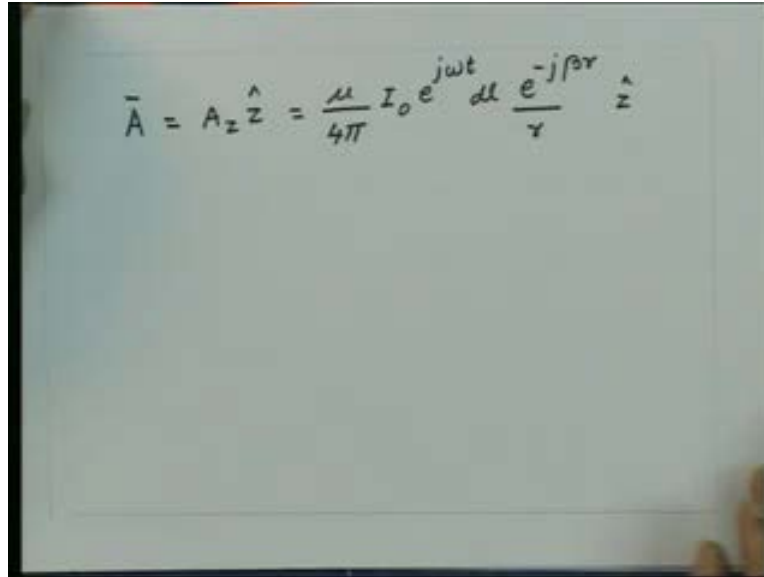 Ā = A_z ẑ = μ/4π I₀ e^{jωt} dl e^{-jβr}/r ẑ